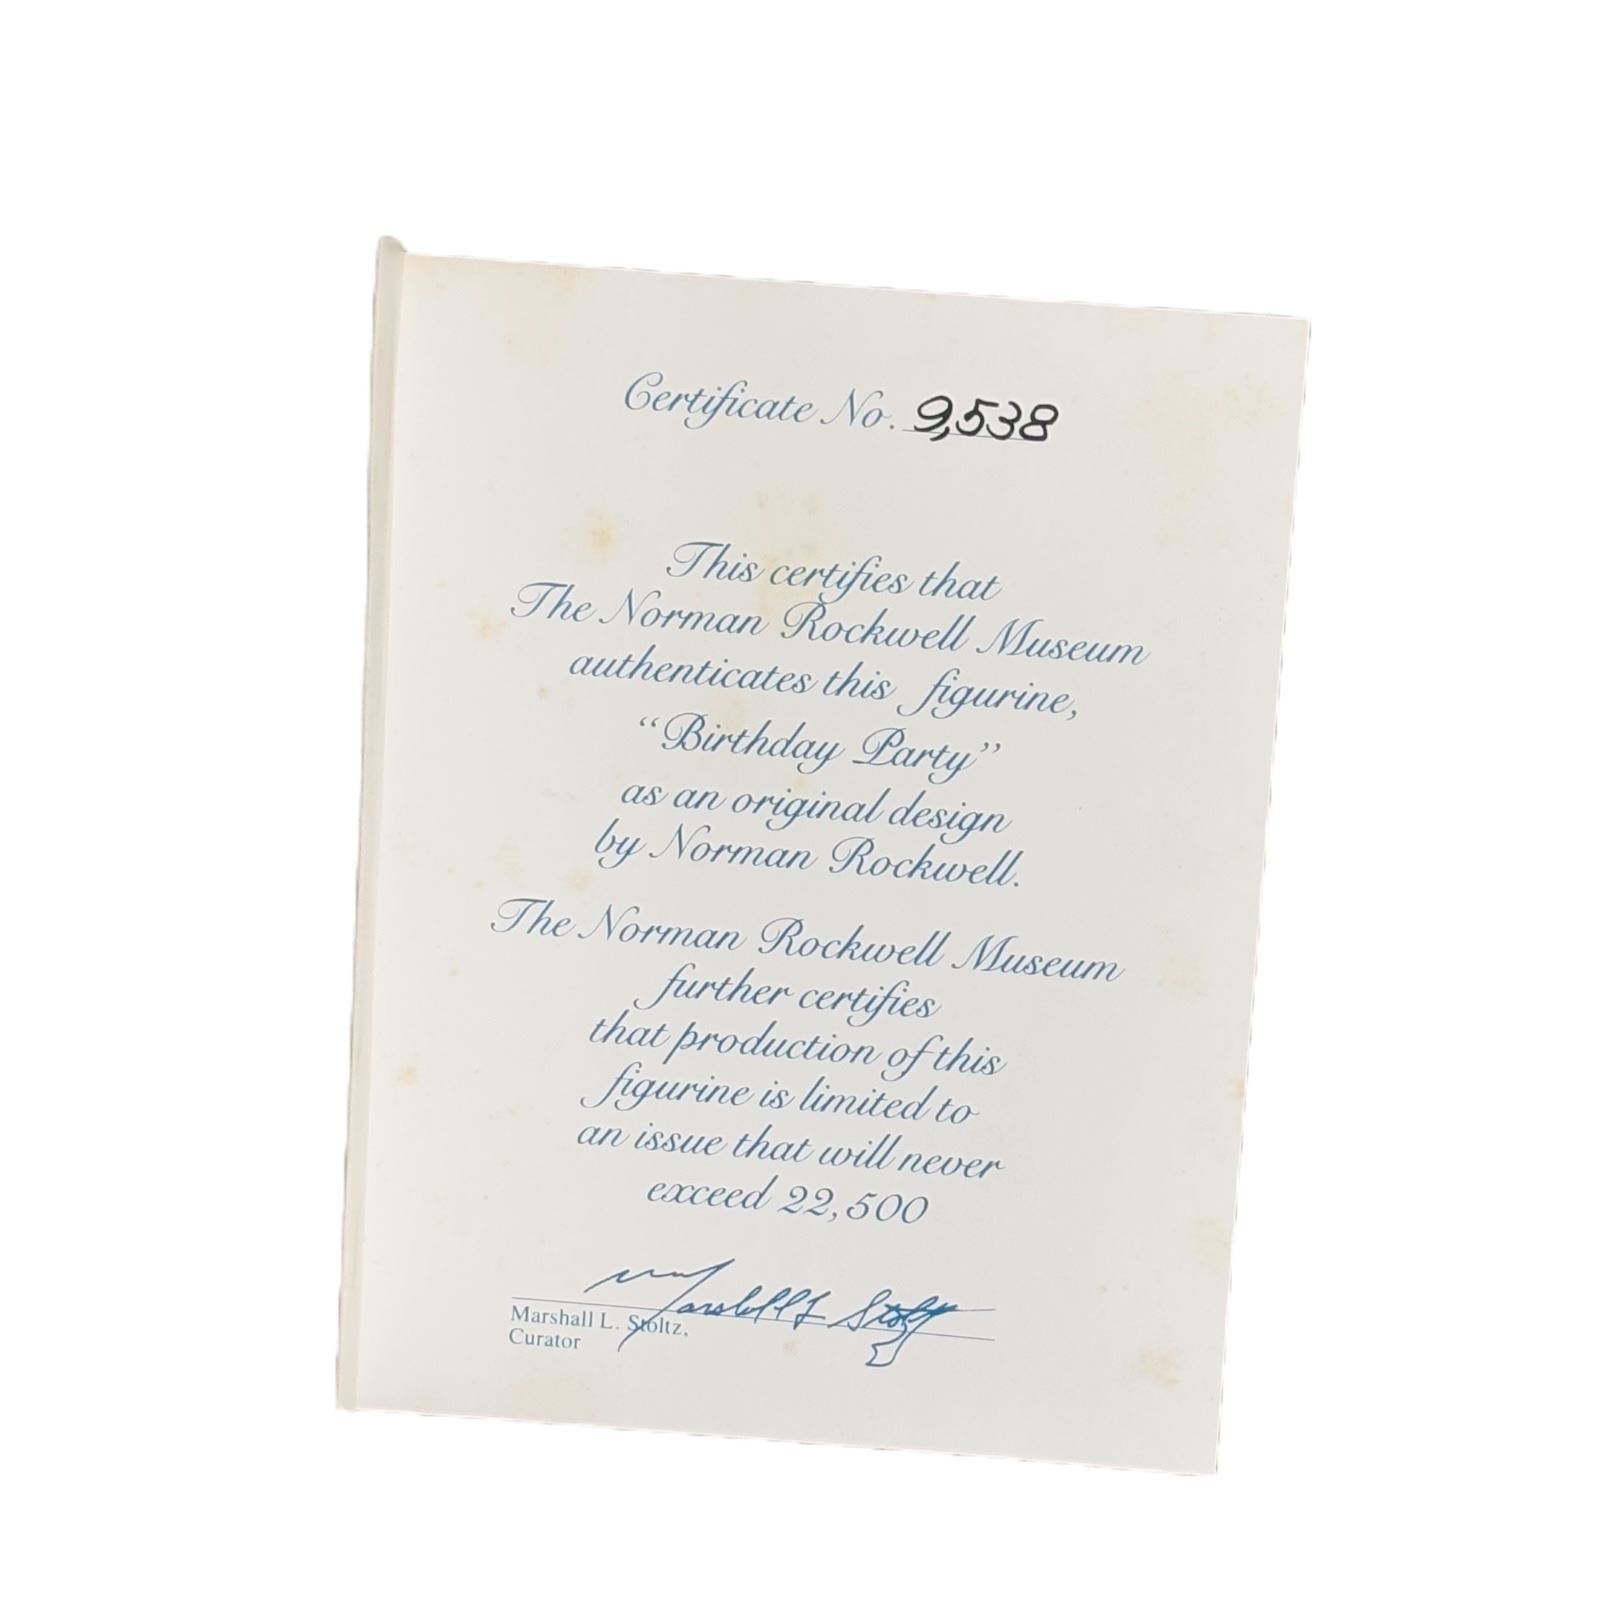 Certificate No. 9,538
This certifies that
The Norman Rockwell Museum
authenticates this figurine,
“Birthday Party”
as an original design
by Norman Rockwell.
The Norman Rockwell Museum
further certifies
that production of this
figurine is limited to
an issue that will never
exceed 22,500
Marshall L Stoltz
Marshall L. Stoltz,
Curator